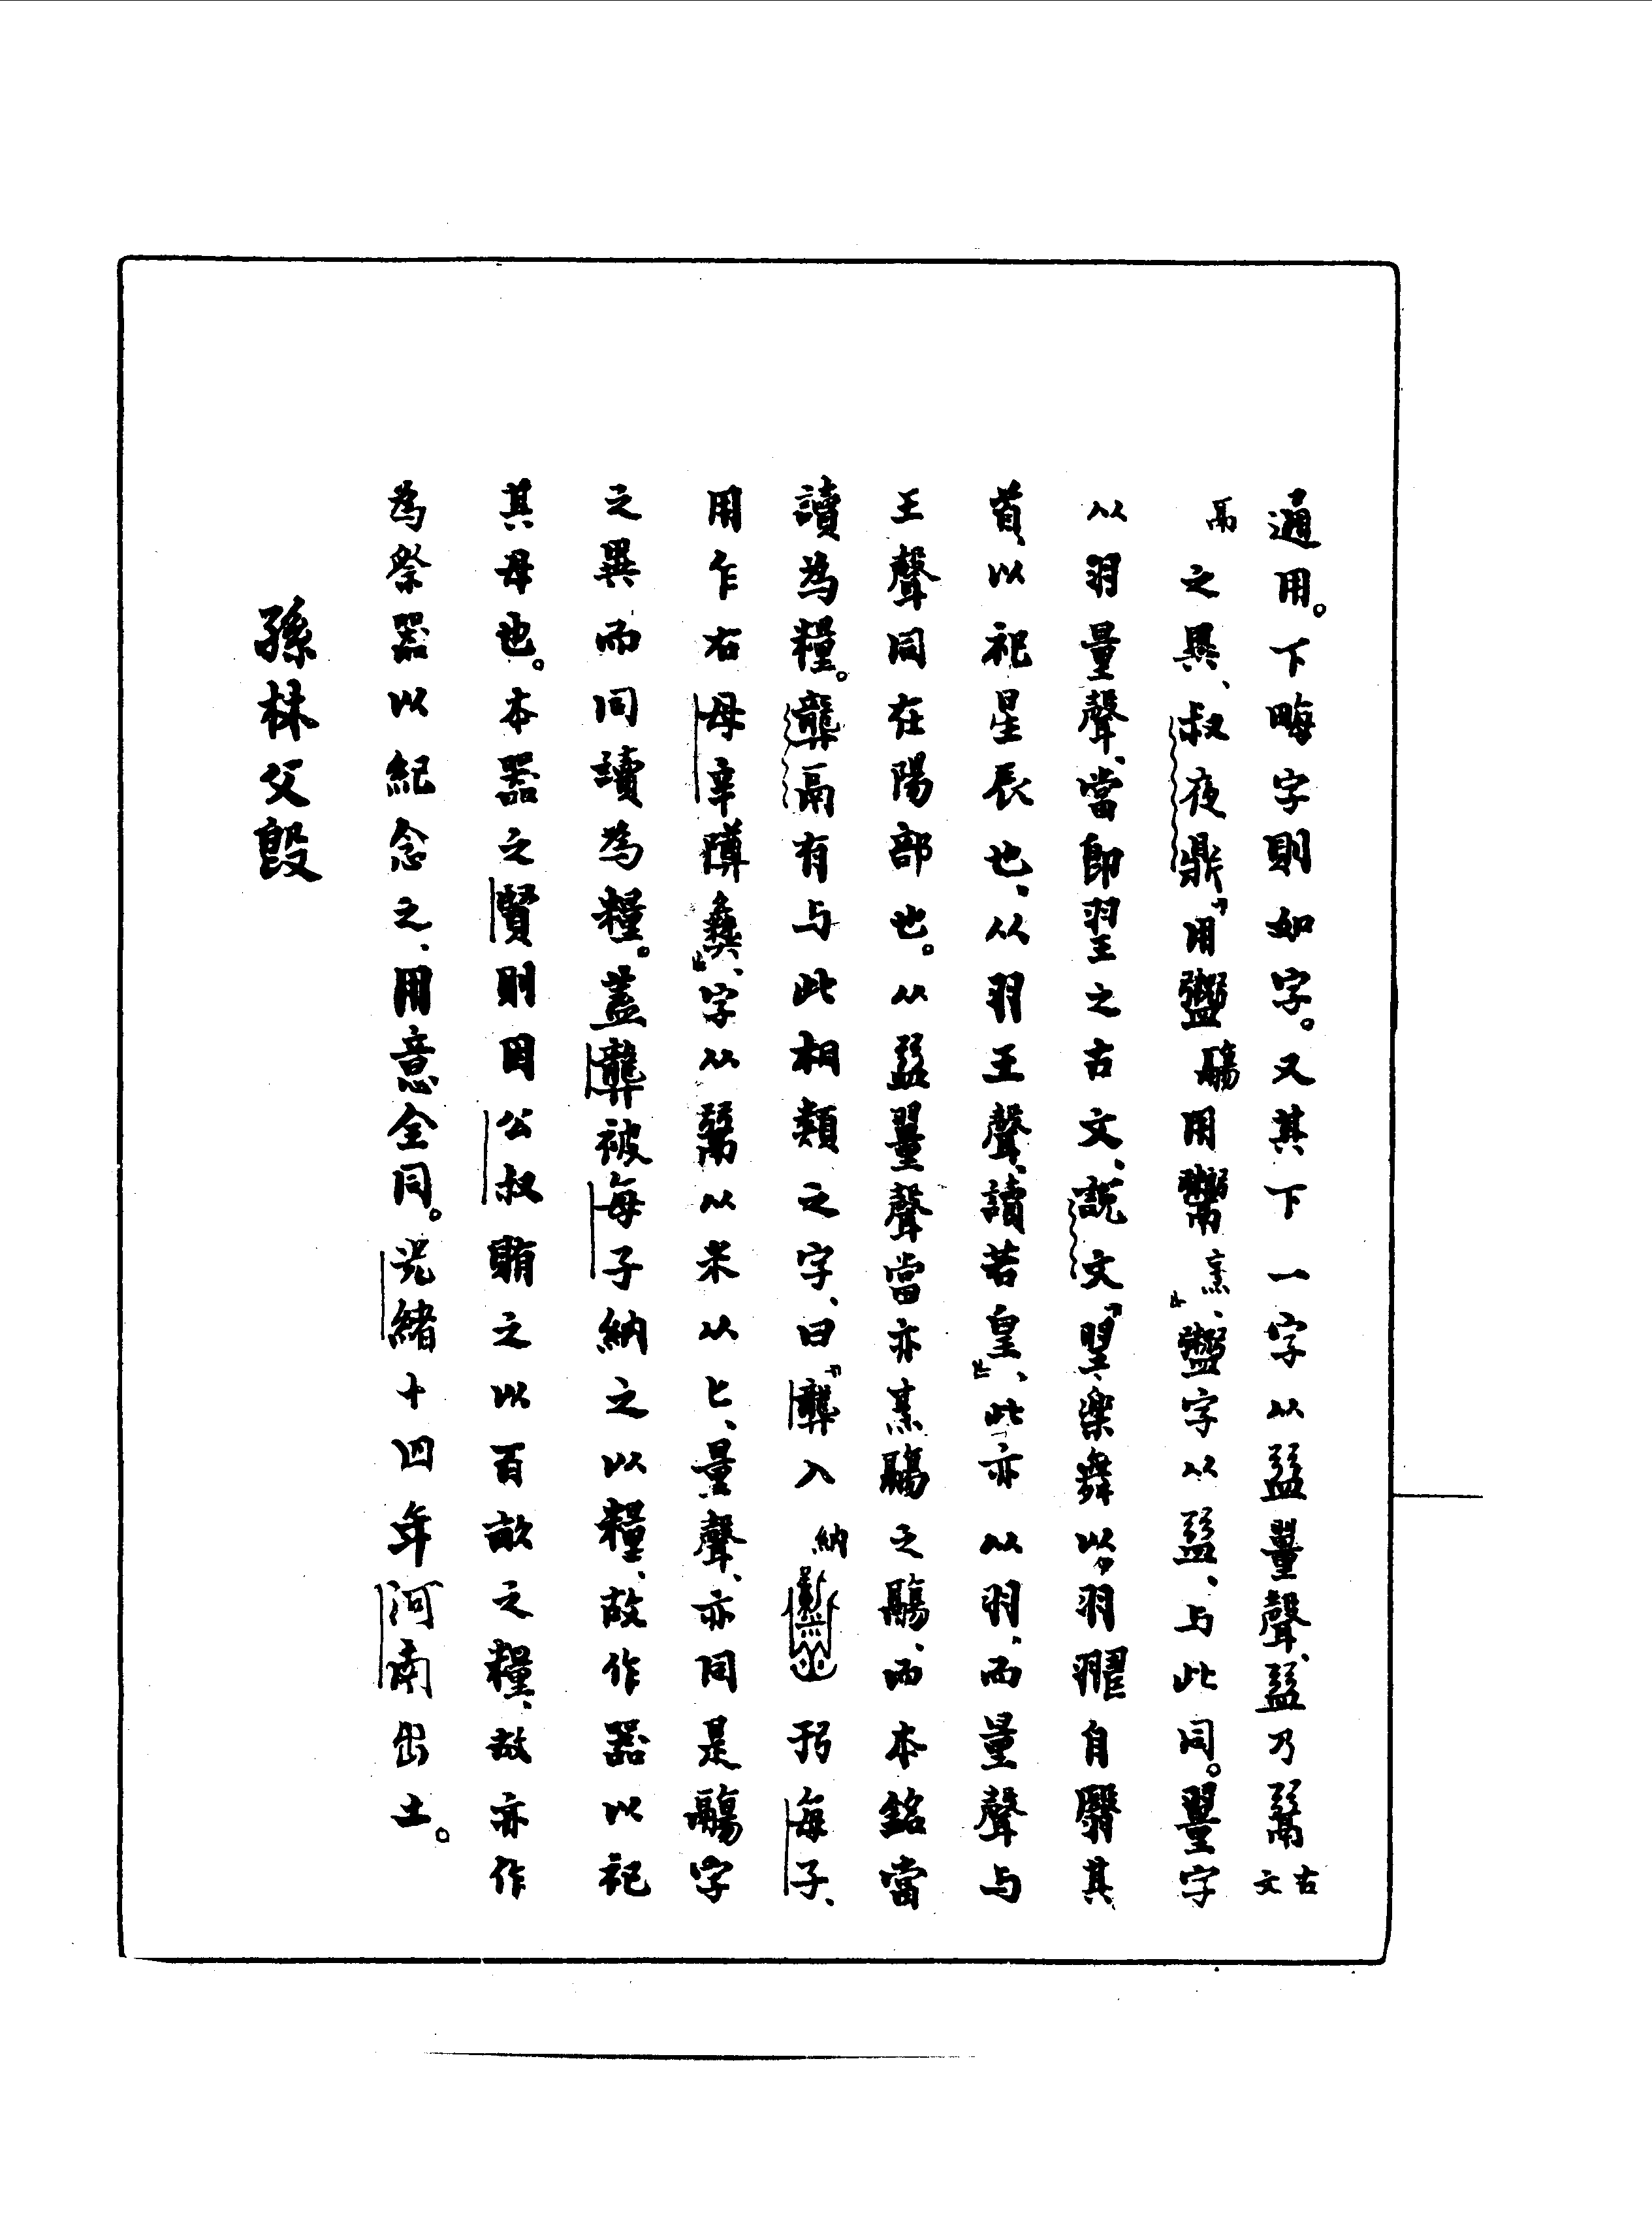 通用。下晦字則如字。又其下一字从𧖧量聲、𧖧乃䰜古文
鬲之異、叔夜鼎『用鬻用烹』、字从𧖧、与此同。䍿字
从羽量聲、當即䍿之古文、說文『䍿樂舞以羽䎘自翳其
首、以祀星辰也、从羽王聲、讀若皇』、此亦从羽、而量聲与
王聲同在陽部也。从𧖧量聲當亦䰞之、而本銘當
讀為糧。龏鬲有与此相類之字、曰『龏入納弜每子、
用乍右母辛䵼彝』、字从䰜以米以匕、量聲、亦同是字
之異而同讀為糧。蓋龏被每子納之以糧、故作器以祀
其母也。本器之賢則因公叔賄之以百畝之糧、故亦作
為祭器以紀念之、用意全同。光緒十四年河南出土。
孫林父𣪘